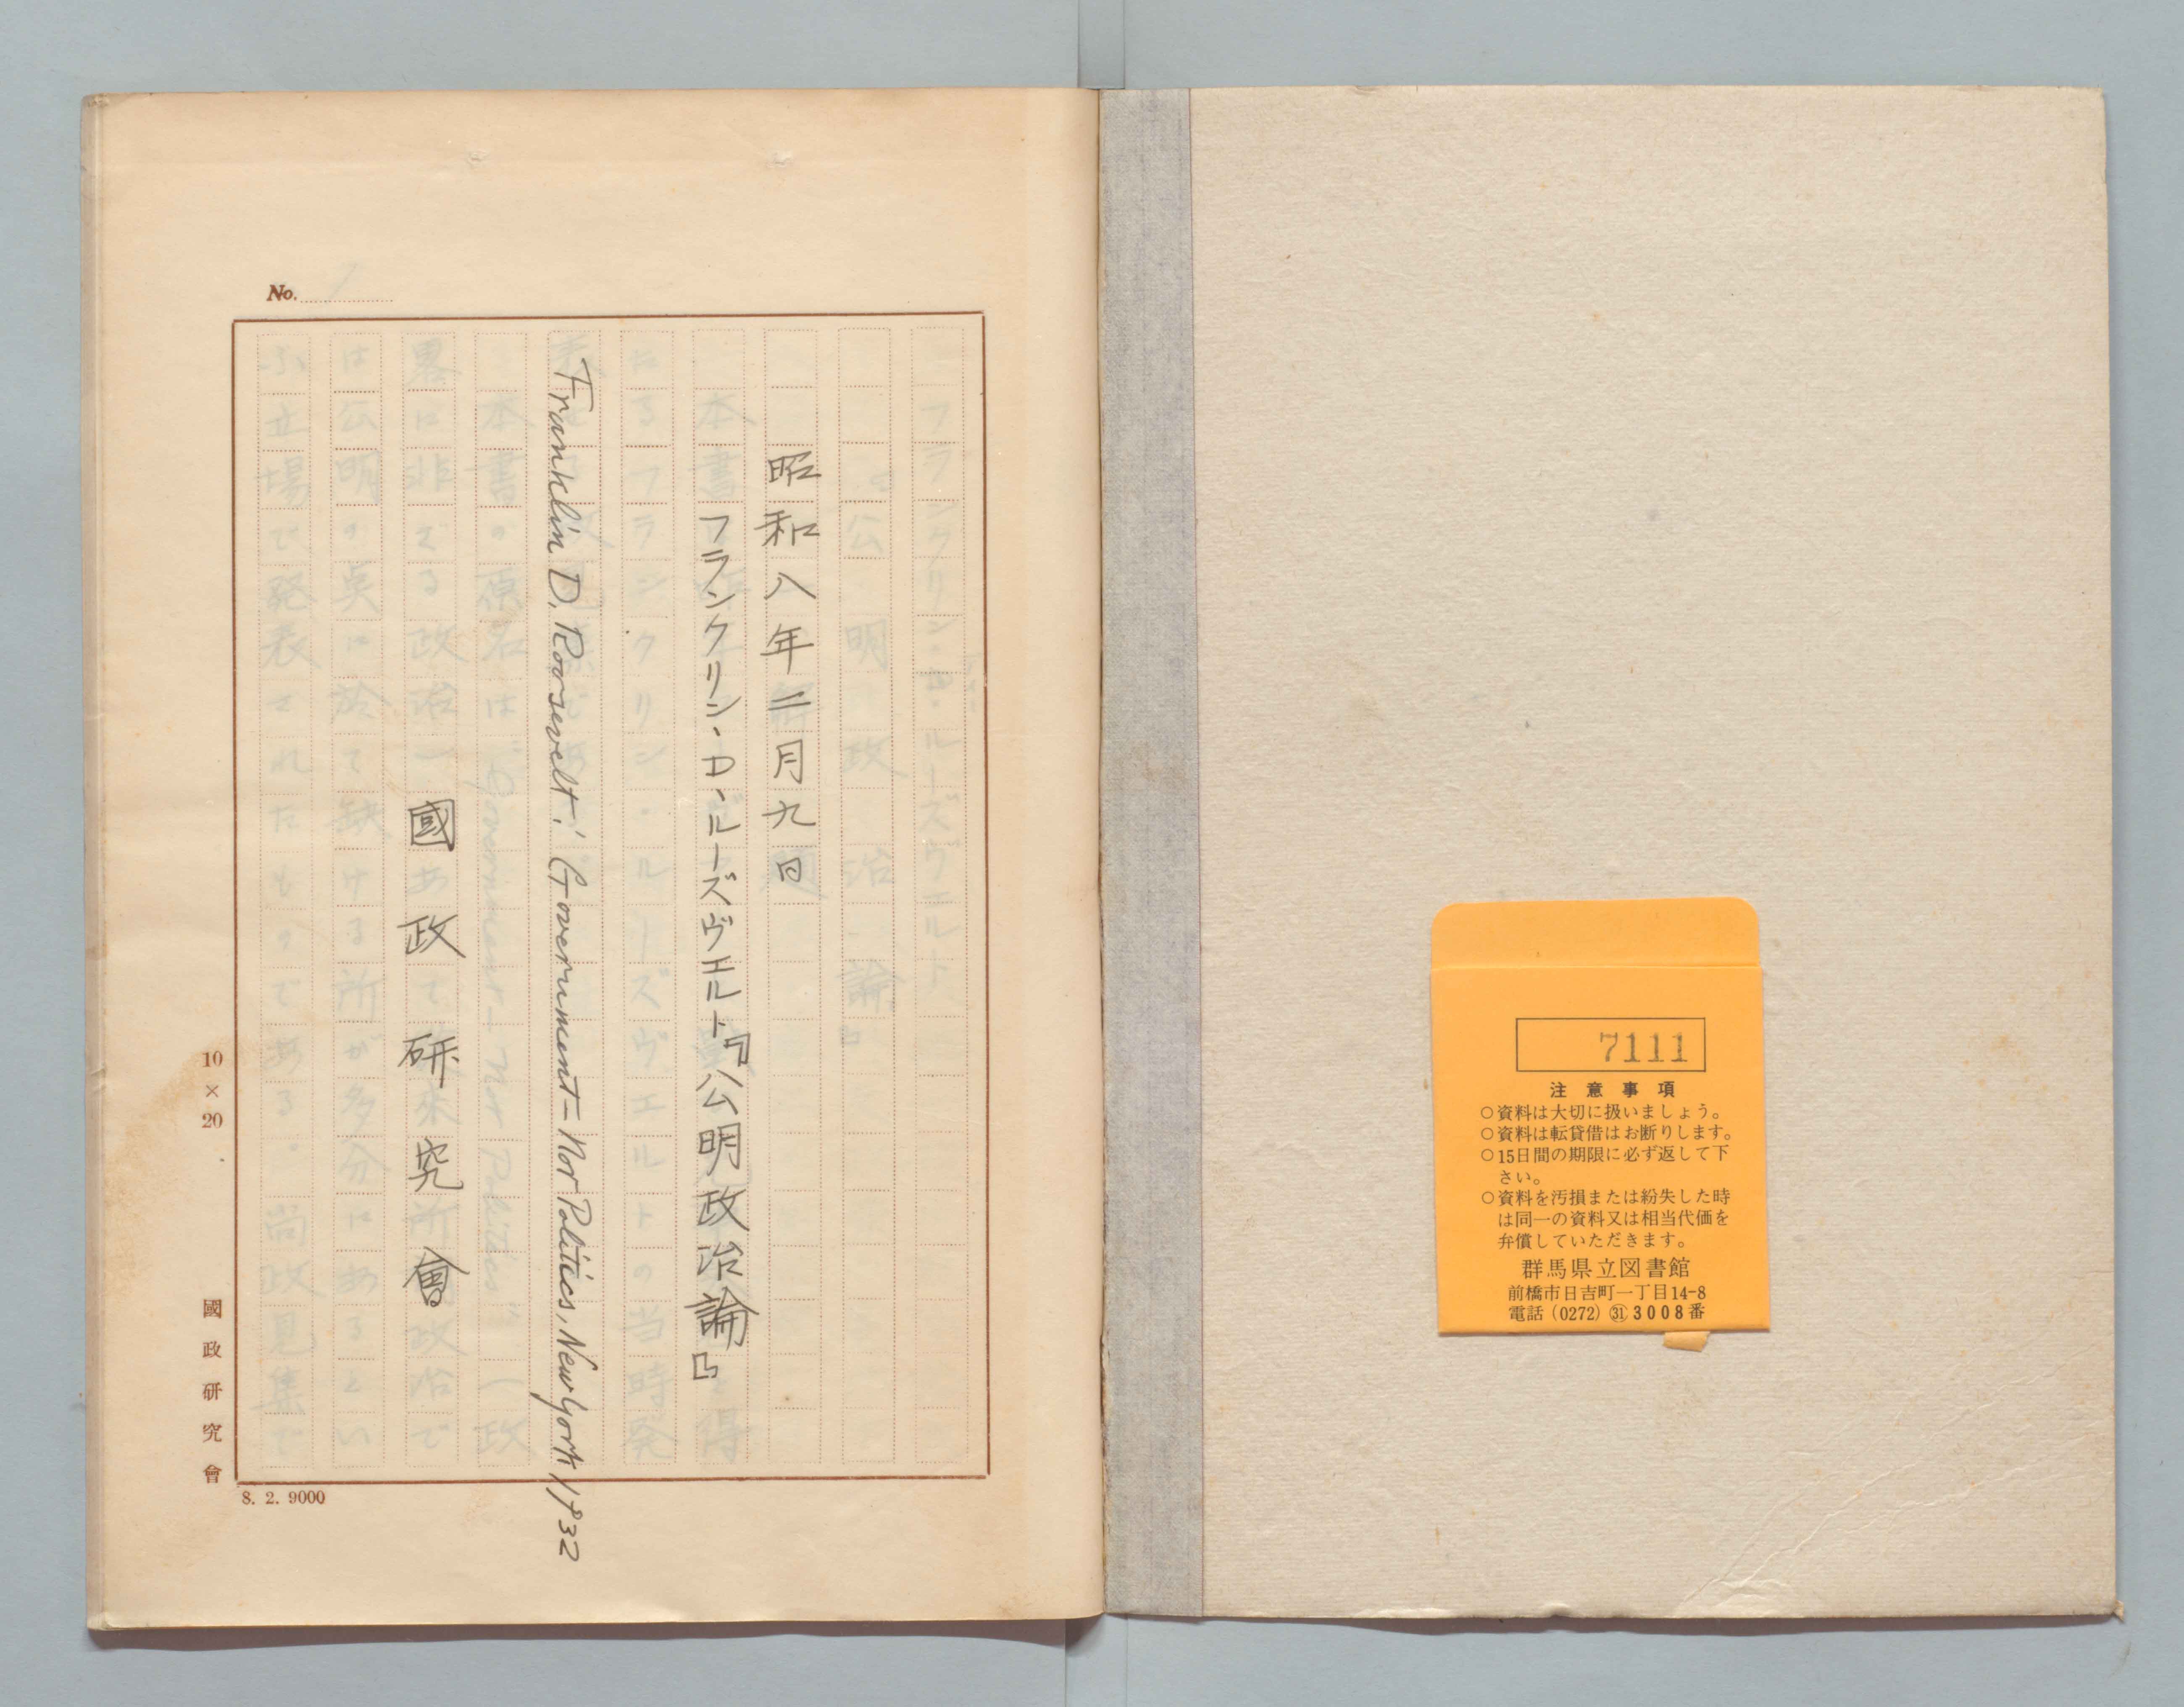 7111
注意事項
○資料は大切に扱いましょう。
○資料は転貸借はお断りします。
○15日間の期限に必ず返して下
さい。
○資料を汚損または紛失した時
は同一の資料又は相当代価を
弁償していただきます。
群馬県立図書館
前橋市日吉町一丁目14-8
電話(0272)㉛3008番
No.
昭和八年二月九日
フランクリン・D・ルーズヴエルト『公明政治論』
Franklin D. Roosevelt: Government—Nor Politics, New York 1932
國政研究會
10×20
國政研究會
8. 2. 9000